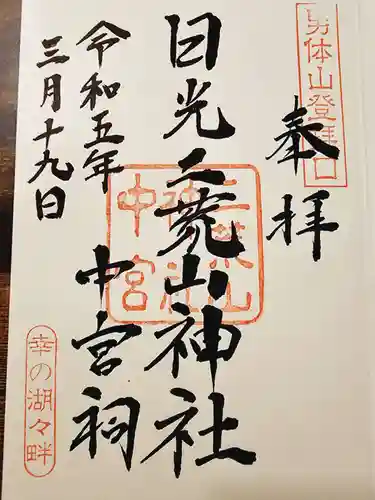 男体山登拝口
奉拝
日光二荒山神社
中宮祠
二荒山神社中宮
令和五年
三月十九日
幸の湖々畔